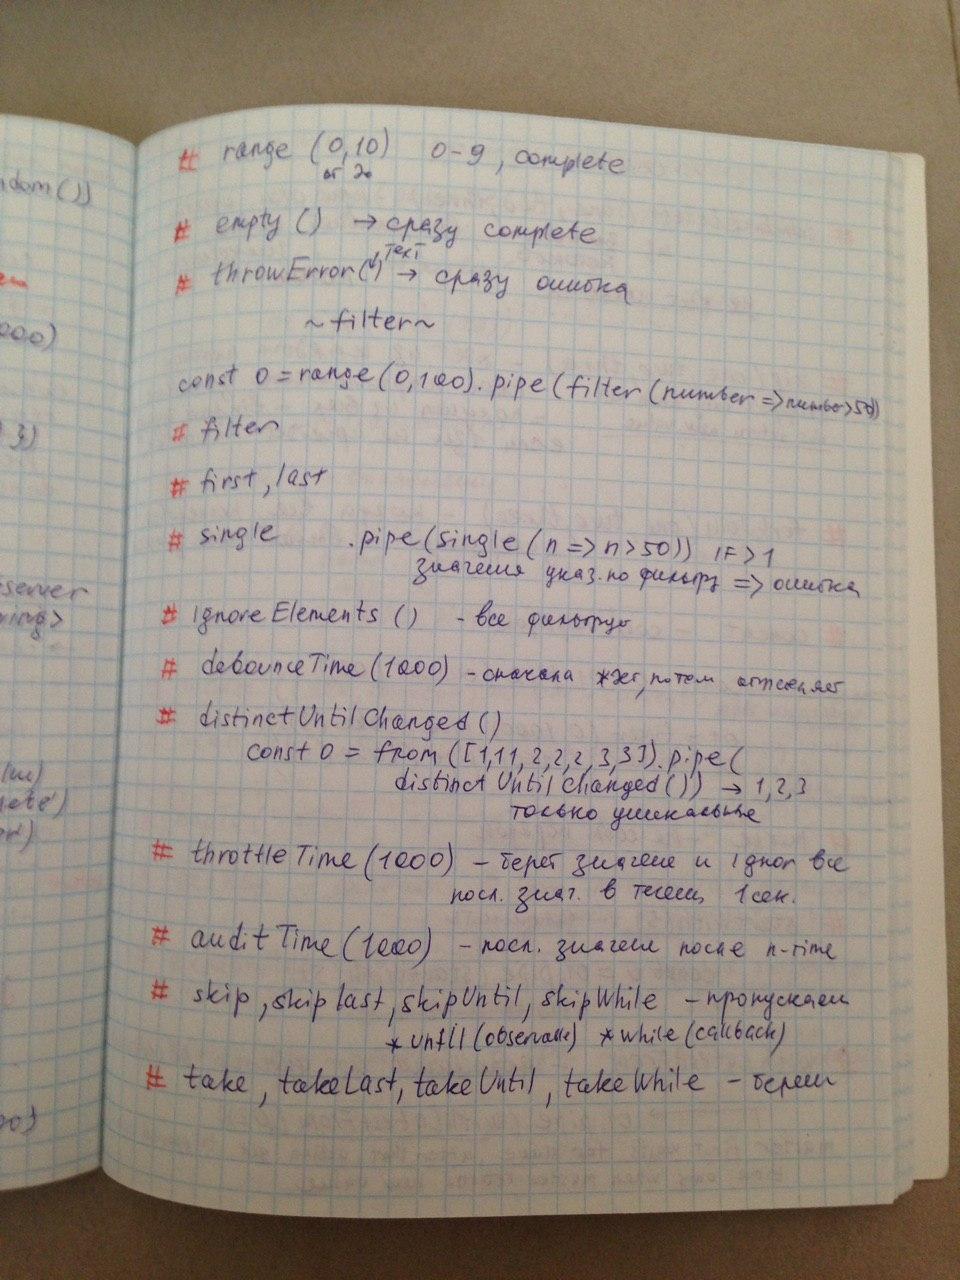 ndom())
000)
3)
server
ring>
lete')
or)
00)
# range (0,10) 0-9, complete
от до
# empty () → сразу complete
текст
# throwError(') → сразу ошибка
~filter~
const o = range(0,100).pipe(filter(number=>number>50))
# filter
# first, last
# single .pipe(single(n=>n>50)) if >1
значения указ. по фильтру => ошибка
# ignoreElements () - все фильтрую
# debounceTime(1000) - сначала *жг, потом
# distinctUntilChanged()
const o = from([1,11,2,2,2,3,3]).pipe(
distinctUntilChanged()) → 1,2,3
только уникальные
# throttleTime(1000) - берет значение и ignor все
посл. знач. в течен. 1 сек.
# auditTime(1000) - посл. значение после n-time
# skip, skipLast, skipUntil, skipWhile - пропускаем
* until(observable) * while(callback)
# take, takeLast, takeUntil, takeWhile - берем